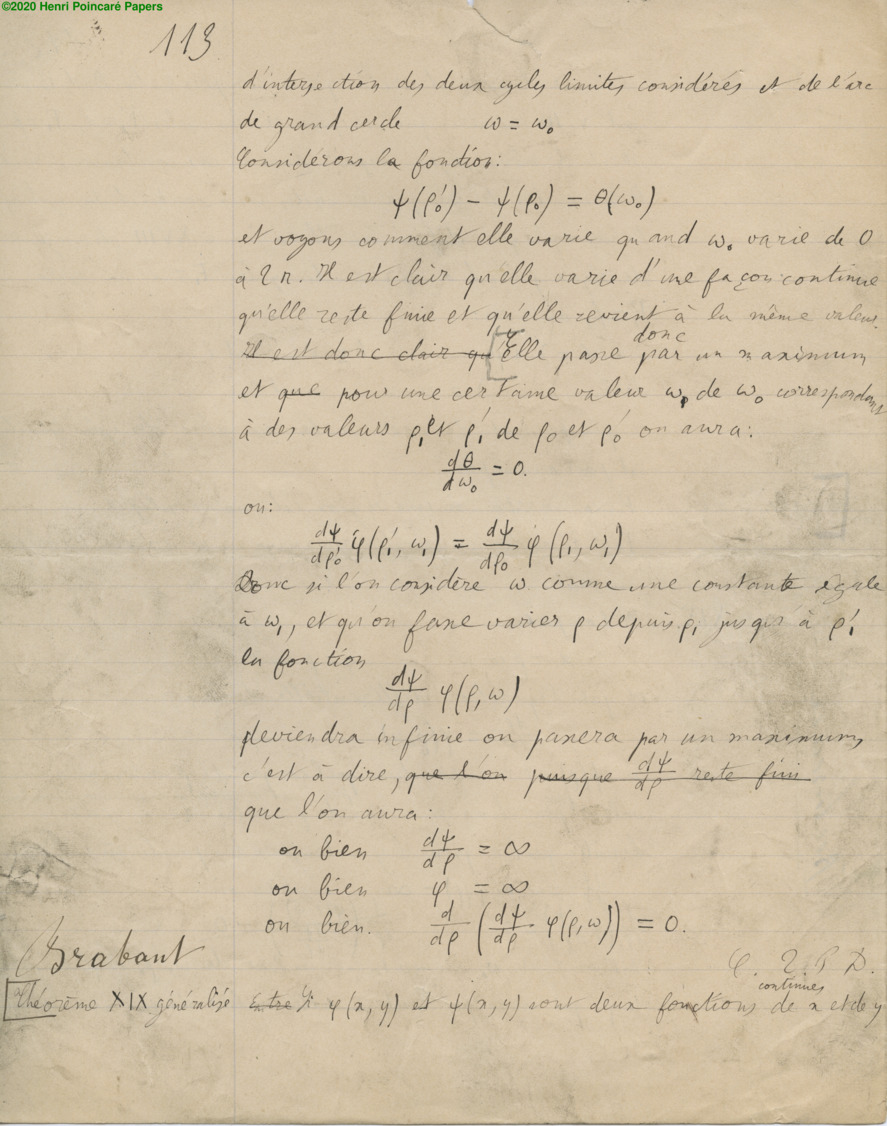 ©2020 Henri Poincaré Papers
113
d'intersection des deux cycles limites considérés et de l'arc
de grand cercle ω = ω₀
Considérons la fonction:
ψ(ρ₀′) − ψ(ρ₀) = θ(ω₀)
et voyons comment elle varie quand ω₀ varie de 0
à 2π. Il est clair qu'elle varie d'une façon continue
qu'elle reste finie et qu'elle revient à la même valeur.
Il est donc clair qu Elle passe donc par un maximum
et que pour une certaine valeur ω₁ de ω₀ correspondant
à des valeurs ρ₁ et ρ₁′ de ρ₀ et ρ₀′ on aura:
dθ/dω₀ = 0.
ou:
dψ/dρ₀′ φ(ρ₁′, ω₁) = dψ/dρ₀ φ(ρ₁, ω₁)
Donc si l'on considère ω comme une constante égale
à ω₁, et qu'on fasse varier ρ depuis ρ₁ jusqu'à ρ₁′
la fonction
dψ/dρ φ(ρ, ω)
deviendra infinie ou passera par un maximum,
c'est à dire, que l'on puisque dψ/dρ reste fini
que l'on aura:
ou bien dψ/dρ = ∞
ou bien φ = ∞
ou bien. d/dρ (dψ/dρ φ(ρ, ω)) = 0.
C. Q. F. D.
Brabant
Théorème XIX généralisé Entre Si φ(x, y) et ψ(x, y) sont deux fonctions continues de x et de y